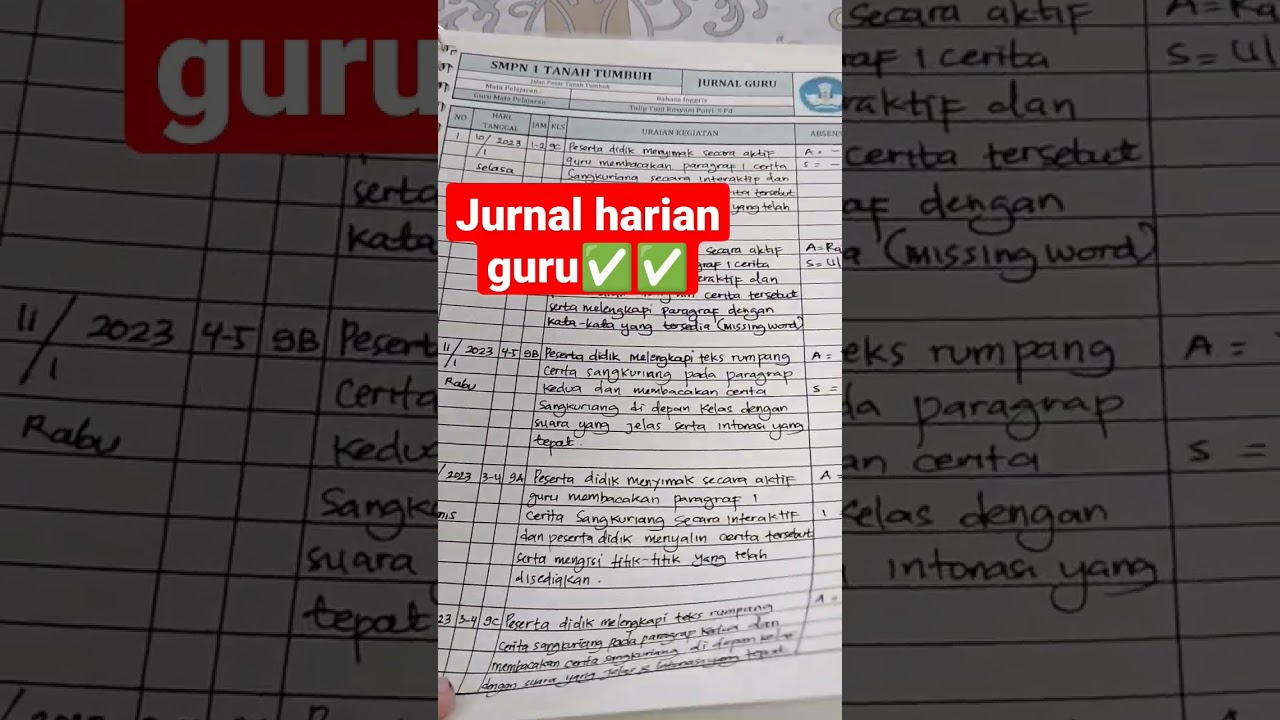 SMPN 1 TANAH TUMBUH
JURNAL GURU
Jalan Pasar Tanah Tumbuh
Mata Pelajaran :
Bahasa Inggris
Guru Mata Pelajaran
Tulip Yuni Rosyani Putri, S.Pd
NO HARI TANGGAL JAM KLS URAIAN KEGIATAN ABSENS
1 10/1 2023 1-2 9C Peserta didik menyimak secara aktif A = -
guru membacakan paragraf 1 cerita S = -
Selasa
Sangkuriang secara interaktif dan
tersebut
yang telah
Jurnal harian
guru✅✅
secara aktif A=Ra
1 cerita S=
dan
cerita tersebut
serta melengkapi paragraf dengan
kata-kata yang tersedia (missing word)
11/1 2023 4-5 9B Peserta didik melengkapi teks rumpang A =
cerita sangkuriang pada paragrap
Rabu
kedua dan membacakan cerita S =
Sangkuriang di depan kelas dengan
suara yang jelas serta intonasi yang
tepat.
/ 2023 3-4 9A Peserta didik menyimak secara aktif A =
guru membacakan paragraf 1
mis
cerita Sangkuriang secara interaktif
dan peserta didik menyalin cerita tersebut
serta mengisi titik-titik yang telah
disediakan.
23 3-4 9C Peserta didik melengkapi teks rumpang A =
cerita sangkuriang pada paragrap kedua dan
membacakan cerita sangkuriang di depan kelas
dengan suara yang jelas & intonasi yang tepat
guru
serta
kata
11/1 2023 4-5 9B Pesert
Cerita
Rabu
kedua
Sangk
suara
tepat
secara aktif A=Ra
raf 1 cerita S=
raktif dan
cerita tersebut
af dengan
a (missing word)
eks rumpang A =
da paragrap
an cerita S =
kelas dengan
intonasi yang